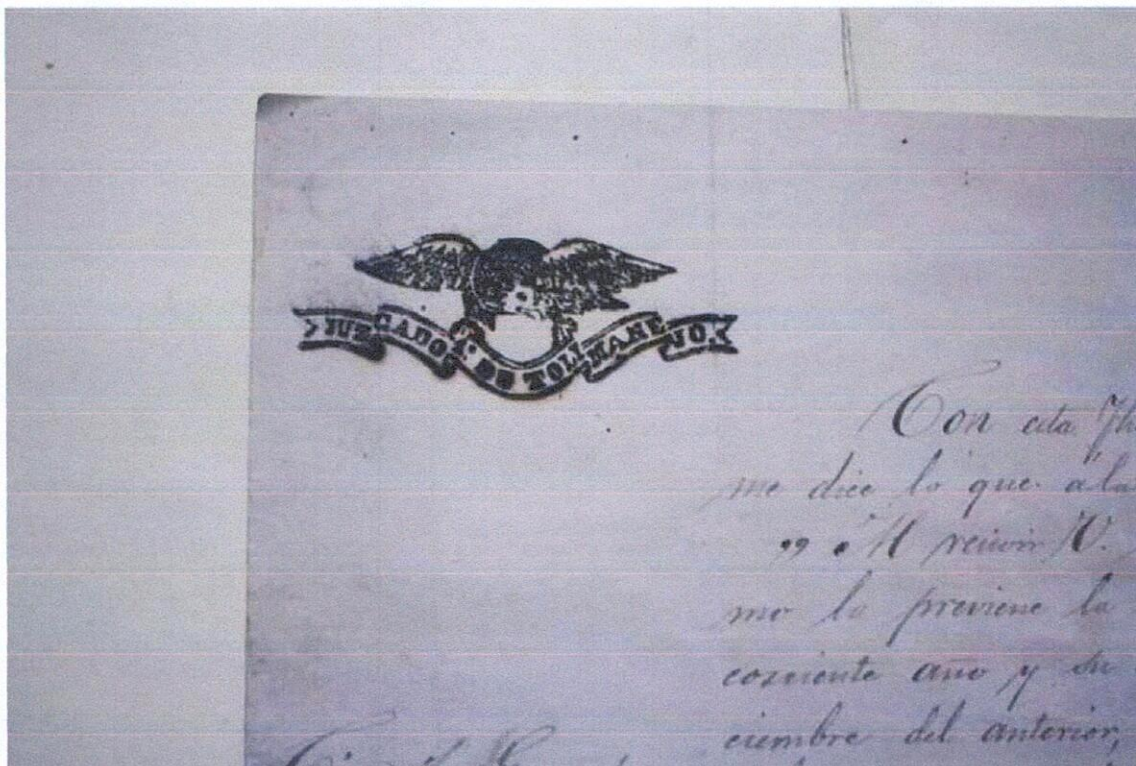 JUZGADO 1º DE TOLIMANEJO.
Con esta fha
me dice lo que á la
" Al recivir V.
mo lo previene la
corriente año y su
ciembre del anterior,